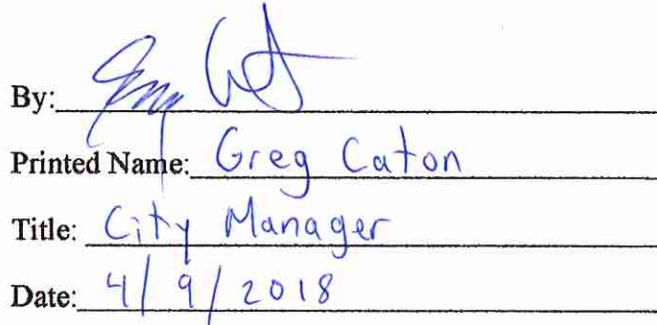 By:
Printed Name: Greg Caton
Title: City Manager
Date: 4/9/2018